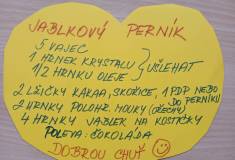 JABLKOVÝ PERNÍK
5 VAJEC
1 HRNEK KRYSTALU
1/2 HRNKU OLEJE } UŠLEHAT
2 LŽIČKY KAKAA, SKOŘICE, 1 PDP NEBO
DO PERNÍKU
2 HRNKY POLOHR. MOUKY (OŘECHY)
4 HRNKY JABLEK NA KOSTIČKY
POLEVA: ČOKOLÁDA
DOBROU CHUŤ